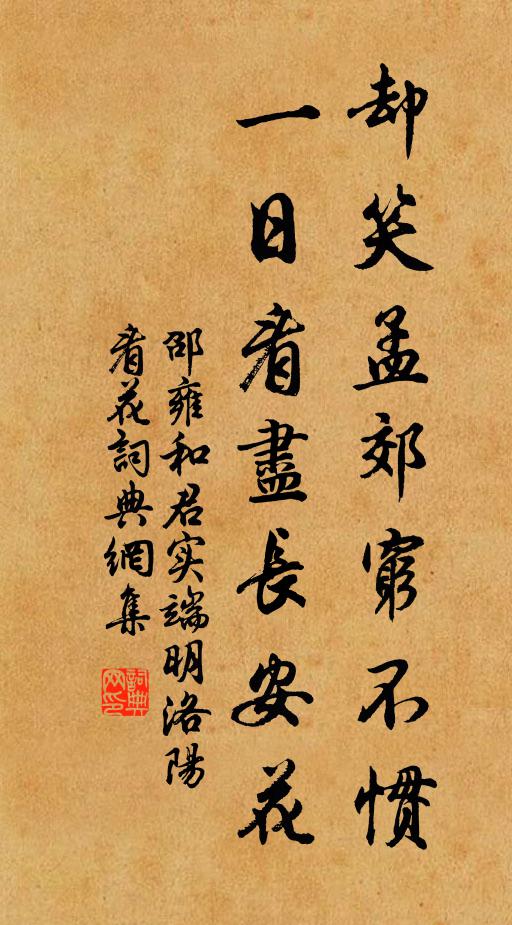 却笑孟郊窮不慣
一日看盡長安花
邵雍和君实端明洛陽
看花詞典網集
詞典网印